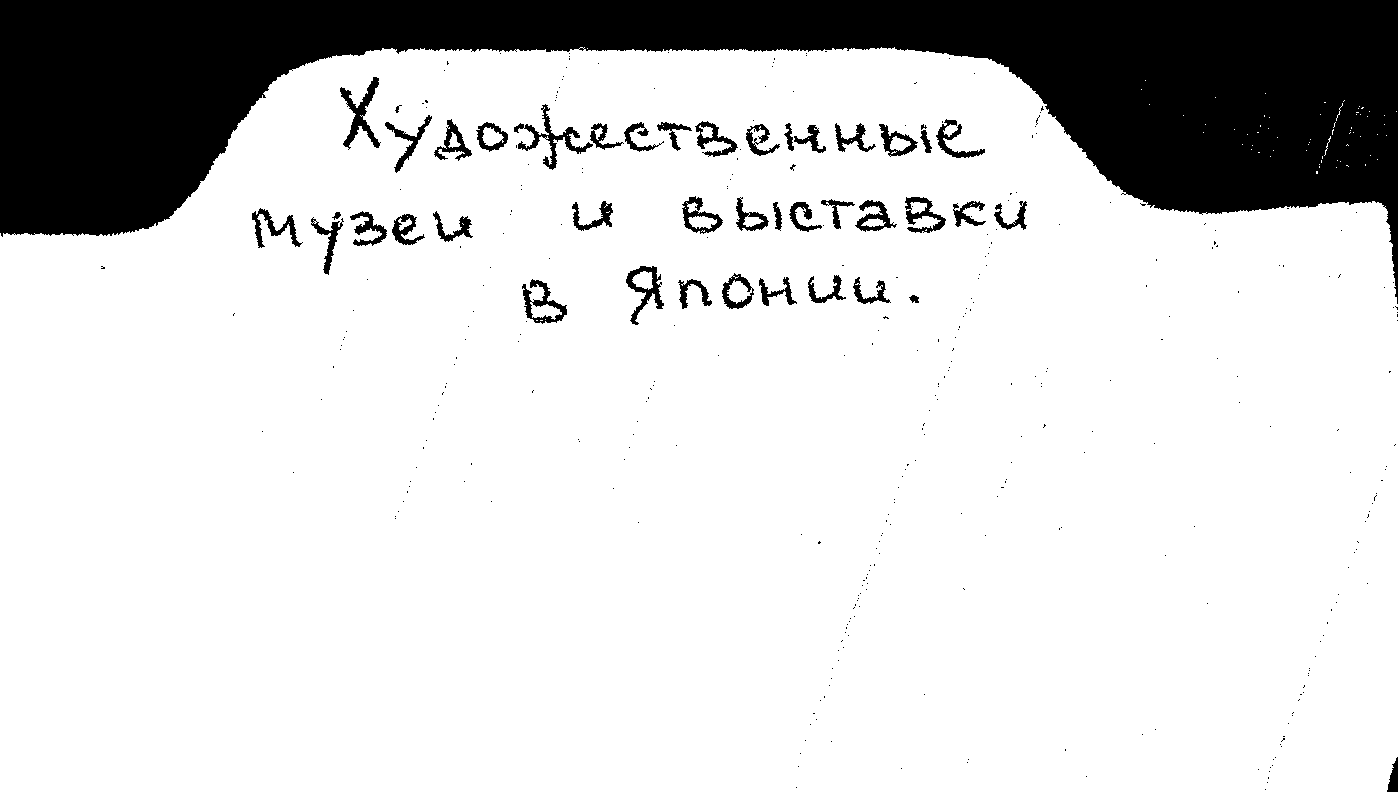 Художественные
музеи и выставки
в Японии.